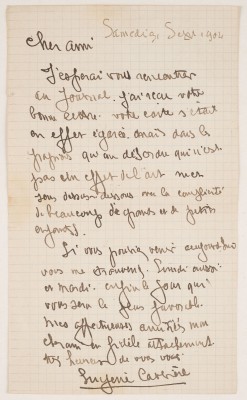 Samedi, Sept. 1904
cher ami
J'espérais vous rencontrer
au Journal. j'ai reçu votre
bonne lettre. votre carte s'était
en effet égarée dans les
papiers qui au désordre qui n'est
pas un effet de l'art mes
sens dessus-dessous par la complicité
de beaucoup de grands et de petits
enfants.
Si vous pouviez venir aujourd'hui
vous me trouverez. Lundi aussi
et mardi. enfin le jour qui
vous sera le plus favorable.
mes affectueuses amitiés mon
cher ami en fidèle attachement
très heureux de vous voir.
Eugène Carrière